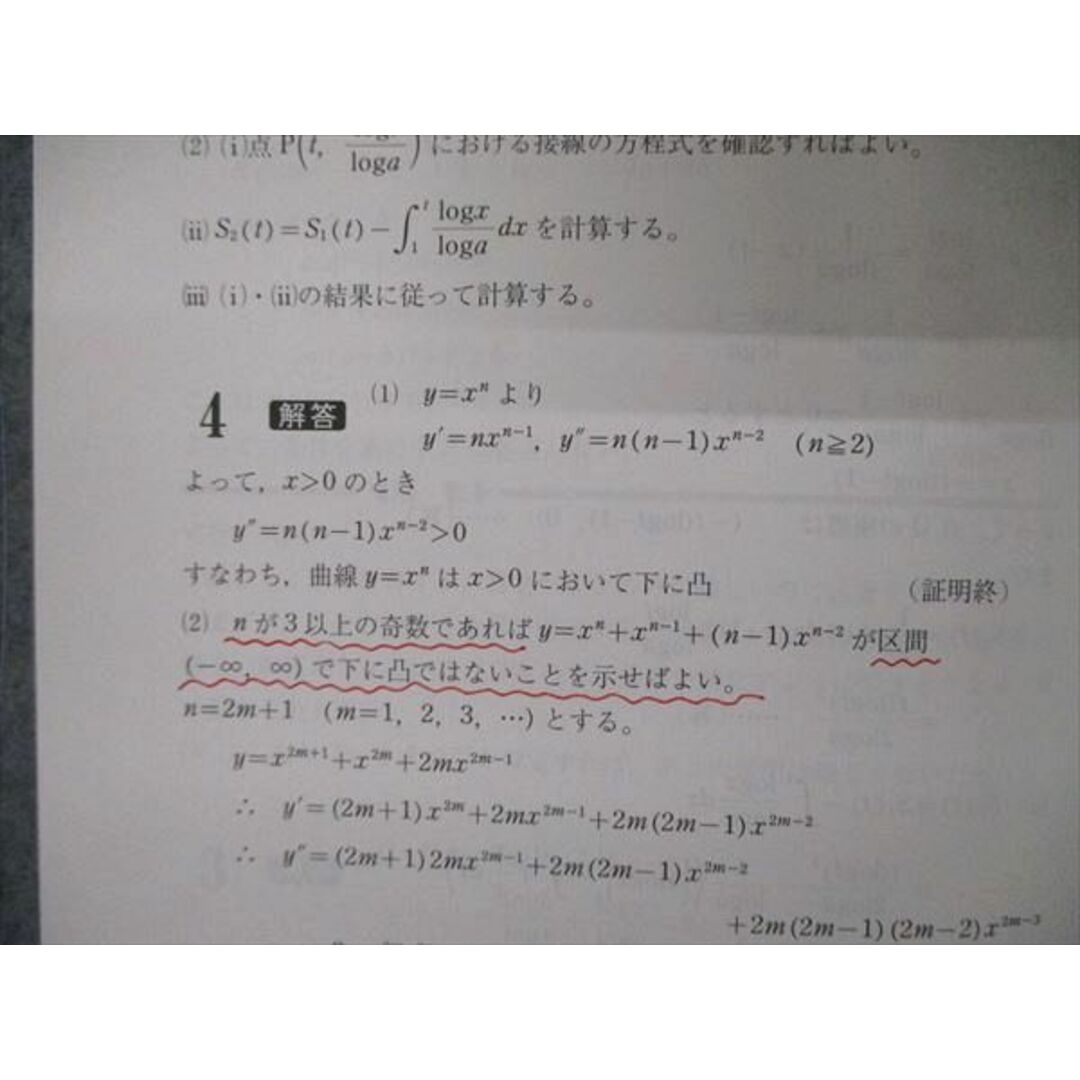 (2) (i)点 P(t, /loga) における接線の方程式を確認すればよい。
(ii) S₂(t)=S₁(t)−∫₁ᵗ logx/loga dx を計算する。
(iii) (i)・(ii)の結果に従って計算する。
4 解答 (1) y=xⁿ より
y′=nxⁿ⁻¹, y″=n(n−1)xⁿ⁻² (n≧2)
よって, x>0 のとき
y″=n(n−1)xⁿ⁻²>0
すなわち, 曲線 y=xⁿ は x>0 において下に凸 (証明終)
(2) n が 3 以上の奇数であれば y=xⁿ+xⁿ⁻¹+(n−1)xⁿ⁻² が区間
(−∞, ∞) で下に凸ではないことを示せばよい。
n=2m+1 (m=1, 2, 3, …) とする。
y=x²ᵐ⁺¹+x²ᵐ+2mx²ᵐ⁻¹
∴ y′=(2m+1)x²ᵐ+2mx²ᵐ⁻¹+2m(2m−1)x²ᵐ⁻²
∴ y″=(2m+1)2mx²ᵐ⁻¹+2m(2m−1)x²ᵐ⁻²
+2m(2m−1)(2m−2)x²ᵐ⁻³